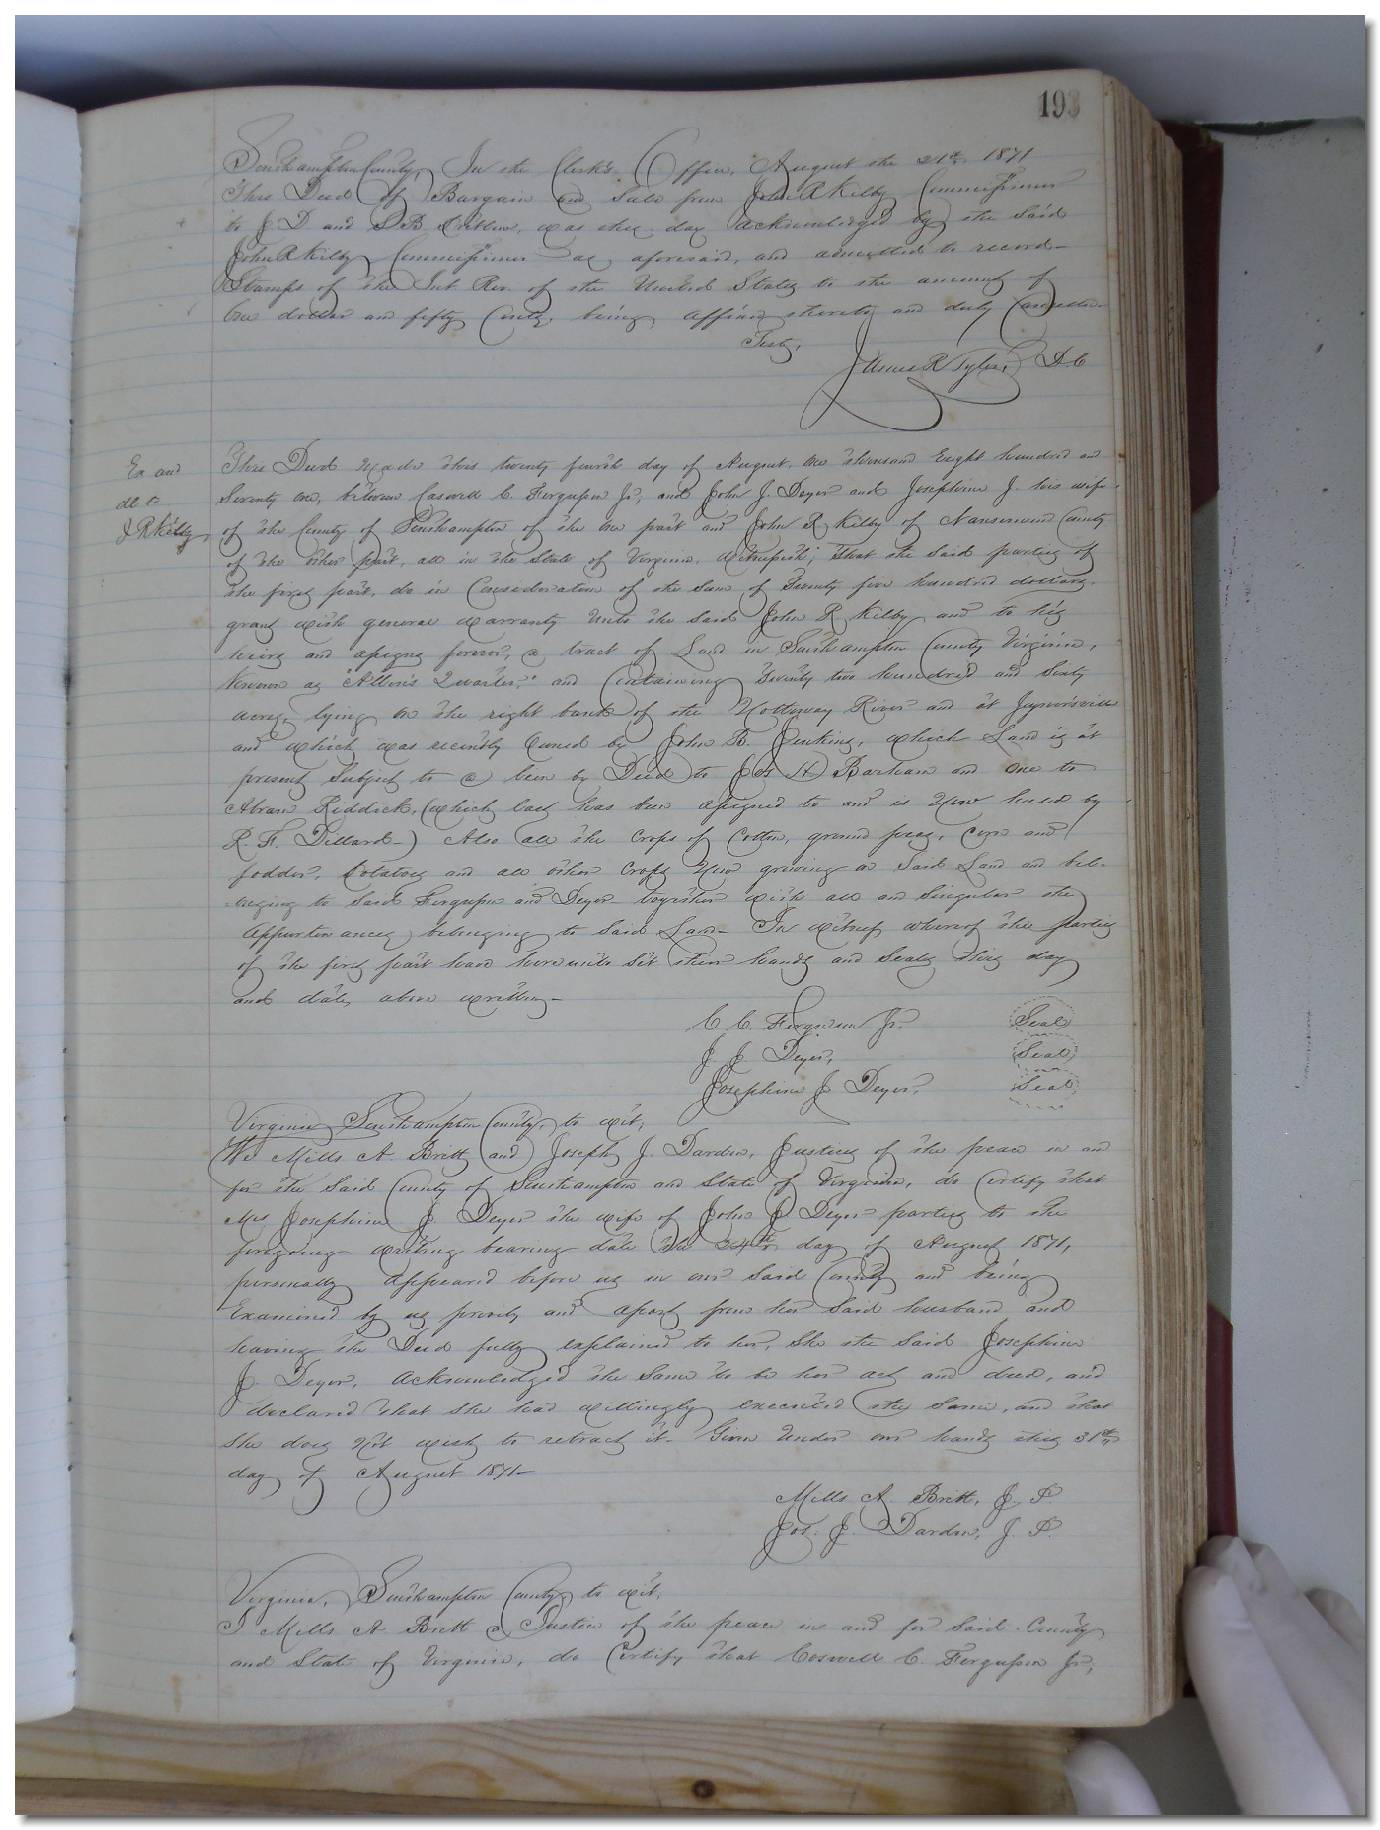 193
Southampton County, In the Clerk's Office, August the 21st 1871
This Deed of Bargain and Sale from John R Kilby Commissioner
to J. D and S. B. was this day acknowledged by the said
John R Kilby Commissioner as aforesaid, and admitted to record—
Stamps of the Int. Rev. of the United States to the amount of
One dollar and fifty Cents, being affixed thereto and duly Cancelled—
Teste,
James R Tyler, D.C
Ex and
dd to
J R Kilby
This Deed Made this twenty fourth day of August, One thousand Eight hundred and
Seventy One, between Caswell C. Ferguson Jr, and John J. Deyer and Josephine J. his wife
of the County of Southampton of the one part and John R Kilby of Nansemond County
of the other part, all in the State of Virginia, Witnesseth; That the said parties of
the first part, do in Consideration of the Sum of Twenty five hundred dollars,
grant with general warranty unto the said John R Kilby and to his
heirs and assigns forever, a tract of Land in Southampton County Virginia,
Known as "Allen's Quarter," and Containing Twenty two hundred and Sixty
acres, lying on the right bank of the Nottoway River and at
and which was recently owned by John B. Jenkins, which Land is at
present Subject to a lien by Deed to Jas H Barham and one to
Abram Riddick, (which last has been assigned to and is Now held by
R. F. Dillard—) Also all the Crops of Cotton, ground peas, Corn and
fodder, Potatoes and all other Crops Now growing on Said Land and bel-
-onging to Said Ferguson and Deyer together with all and Singular the
Appurtenances belonging to Said Land— In witness whereof the parties
of the first part have hereunto Set their hands and Seals this day
and date above written—
C C. Ferguson Jr. Seal
J. J. Deyer, Seal
Josephine J Deyer. Seal
Virginia Southampton County, to wit,
We Mills A Britt and Joseph J. Darden, Justices of the peace in and
for the Said County of Southampton and State of Virginia, do Certify that
Mrs Josephine J. Deyer the wife of John J Deyer parties to the
foregoing writing bearing date the 24th day of August 1871,
personally appeared before us in our Said County and being
Examined by us privily and apart from her Said husband and
having the Deed fully explained to her, She the Said Josephine
J. Deyer, acknowledged the Same to be her act and deed, and
declared that She had willingly executed the Same, and that
She does Not wish to retract it— Given Under our hands this 31st
day of August 1871—
Mills A. Britt, J. P
Jos. J. Darden, J. P.
Virginia, Southampton County, to wit,
I Mills A Britt a Justice of the peace in and for Said County
and State of Virginia, do Certify that Caswell C. Ferguson Jr,